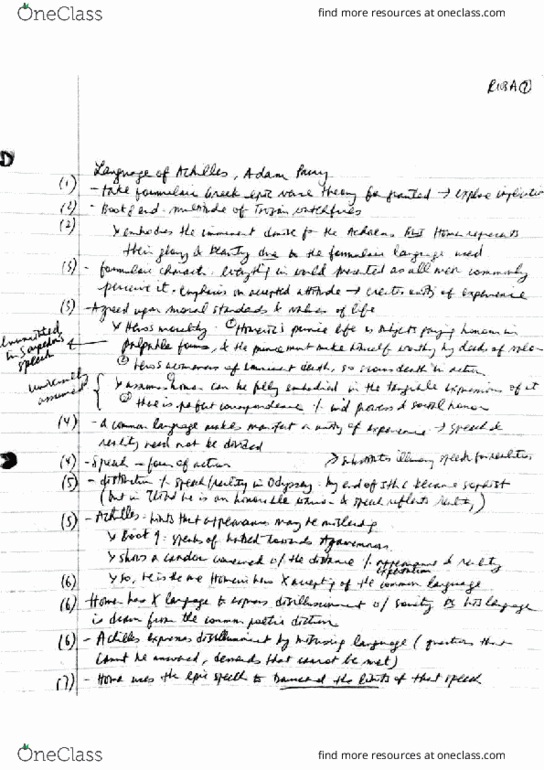 OneClass
find more resources at oneclass.com
Language of Achilles, Adam Parry
(1) - take formulaic Greek epic verse theory for granted → explore implications
(2) - Book 8 end - multitude of Trojan watchfires
(2) the imminent for the Achaeans Homer represents
their glory & beauty due to the formulaic language used
(3) - formulaic character: everything in world presented as all men commonly
perceive it. Emphasis on accepted attitude → creates unity of experience
(3) - Agreed upon moral standards & values of life
in Sarpedon's
speech
life is subjects paying honour in
palpable forms, & the prince must make himself worthy by deeds of valor
of imminent death, so death in action
assumed
honour can be fully embodied in the tangible expressions of it
there is perfect correspondence inner & social honour
(4) - A common language makes manifest a unity of experience → speech &
reality need not be divided
(4) - Speech = form of action
(5) - distinction speech/reality in Odyssey. by end of 5thC became sophist
(but in he is an honorable & speech reflects reality)
(5) - Achilles: hints that appearances may be misleading
Book 9: speaks of hatred towards Agamemnon
shows a candour concerned w/ the distance appearance & reality
expectation
(6) so, he is the one Homeric hero X accepting of the common language
(6) Homer has X language to express disillusionment w/ society his language
is drawn from the common poetic diction
(6) - Achilles expresses disillusionment by misusing language (questions that
cannot be answered, demands that cannot be met)
(7) - Homer uses the epic speech to transcend the limits of that speech
OneClass
find more resources at oneclass.com